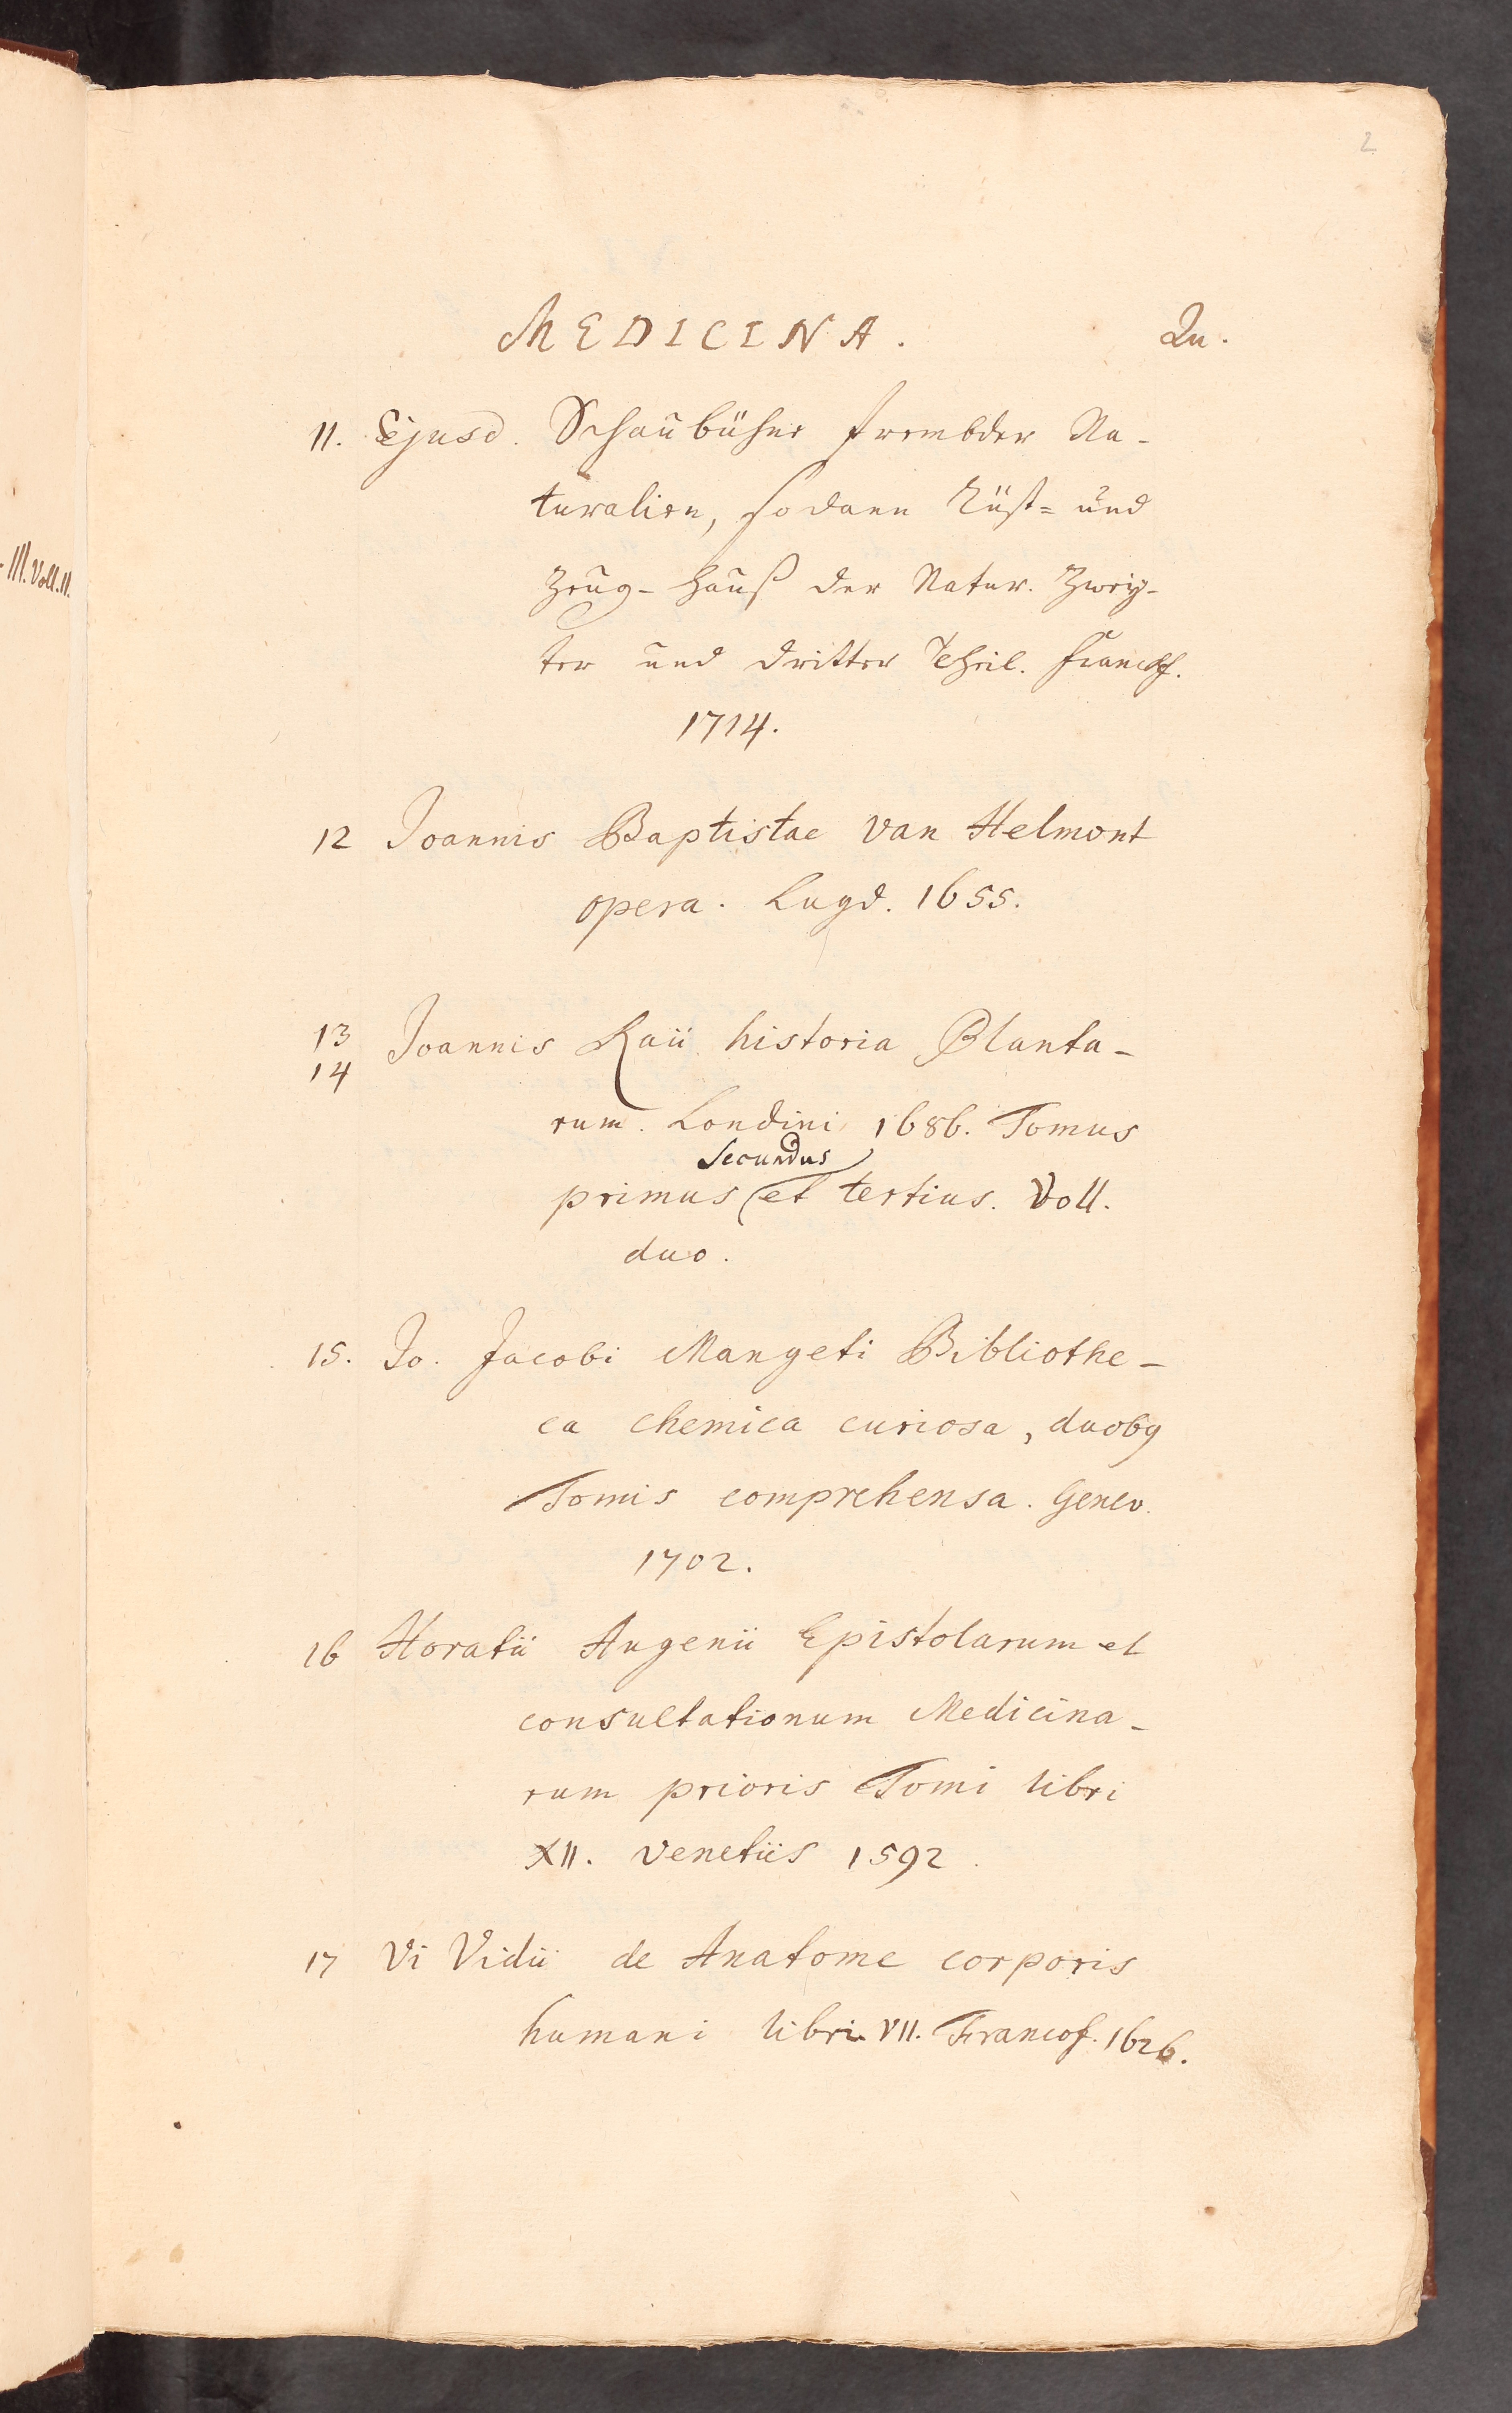 2
MEDICINA. Qu.
III. Voll. II.
11. Ejusd. Schaubühne frembder Na-
turalien, sodann Rüst= und
Zeug-Hauß der Natur. Zwey-
ter und dritter Theil. Franckf.
1714.
12 Joannis Baptistae van Helmont
opera. Lugd. 1655.
13
14
Joannis Raii historia Planta-
rum. Londini 1686. Tomus
secundus
primus et tertius. Voll.
duo.
15. Jo. Jacobi Mangeti Bibliothe-
ca chemica curiosa, duobq
Tomis comprehensa. Genev.
1702.
16 Horatii Augenii Epistolarum et
consultationum Medicina-
rum prioris Tomi libri
XII. Venetiis 1592.
17 Vi Vidii de Anatome corporis
humani libri VII. Francof. 1626.